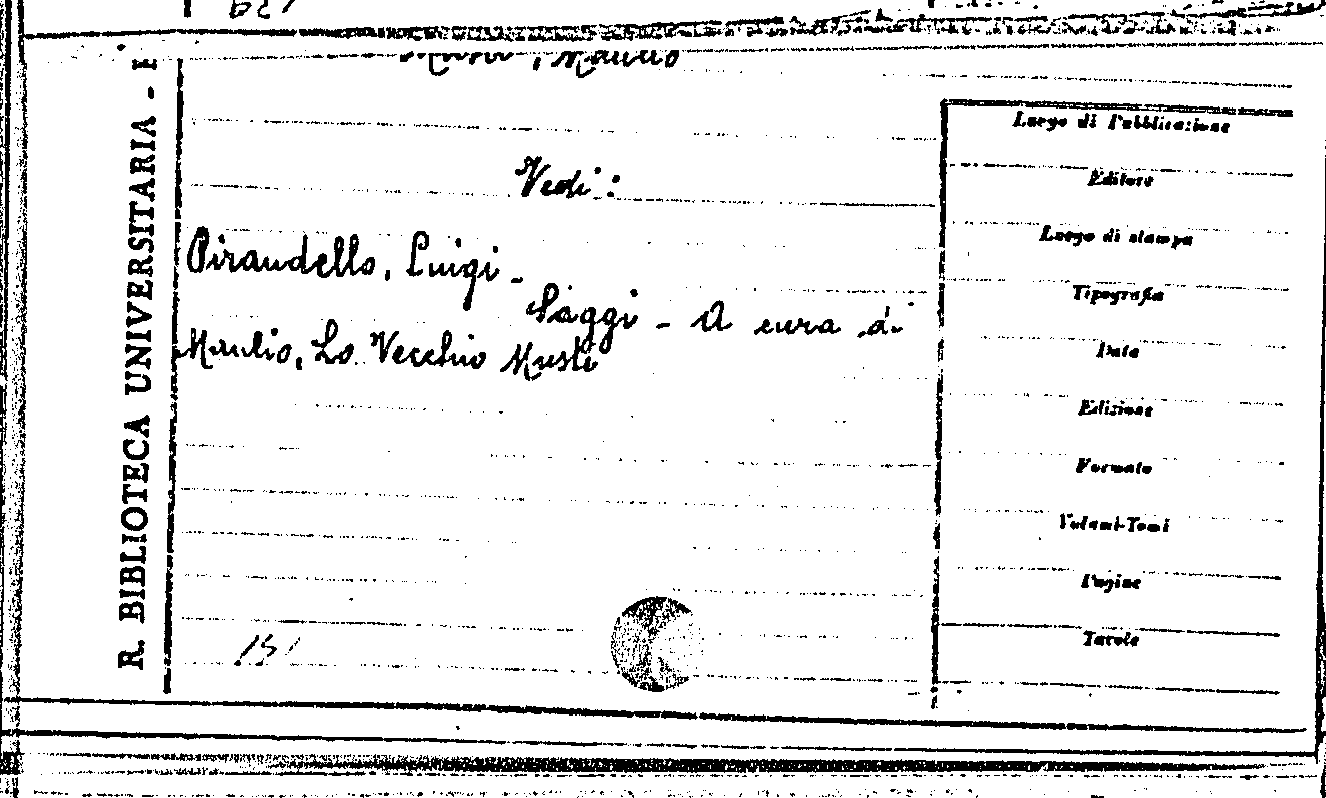 R. BIBLIOTECA UNIVERSITARIA -
Vedi:
Pirandello, Luigi -
Saggi - A cura di
Manlio, Lo Vecchio Musti
151
Luogo di Pubblicazione
Editore
Luogo di stampa
Tipografia
Data
Edizione
Formato
Volumi-Tomi
Pagine
Tavole